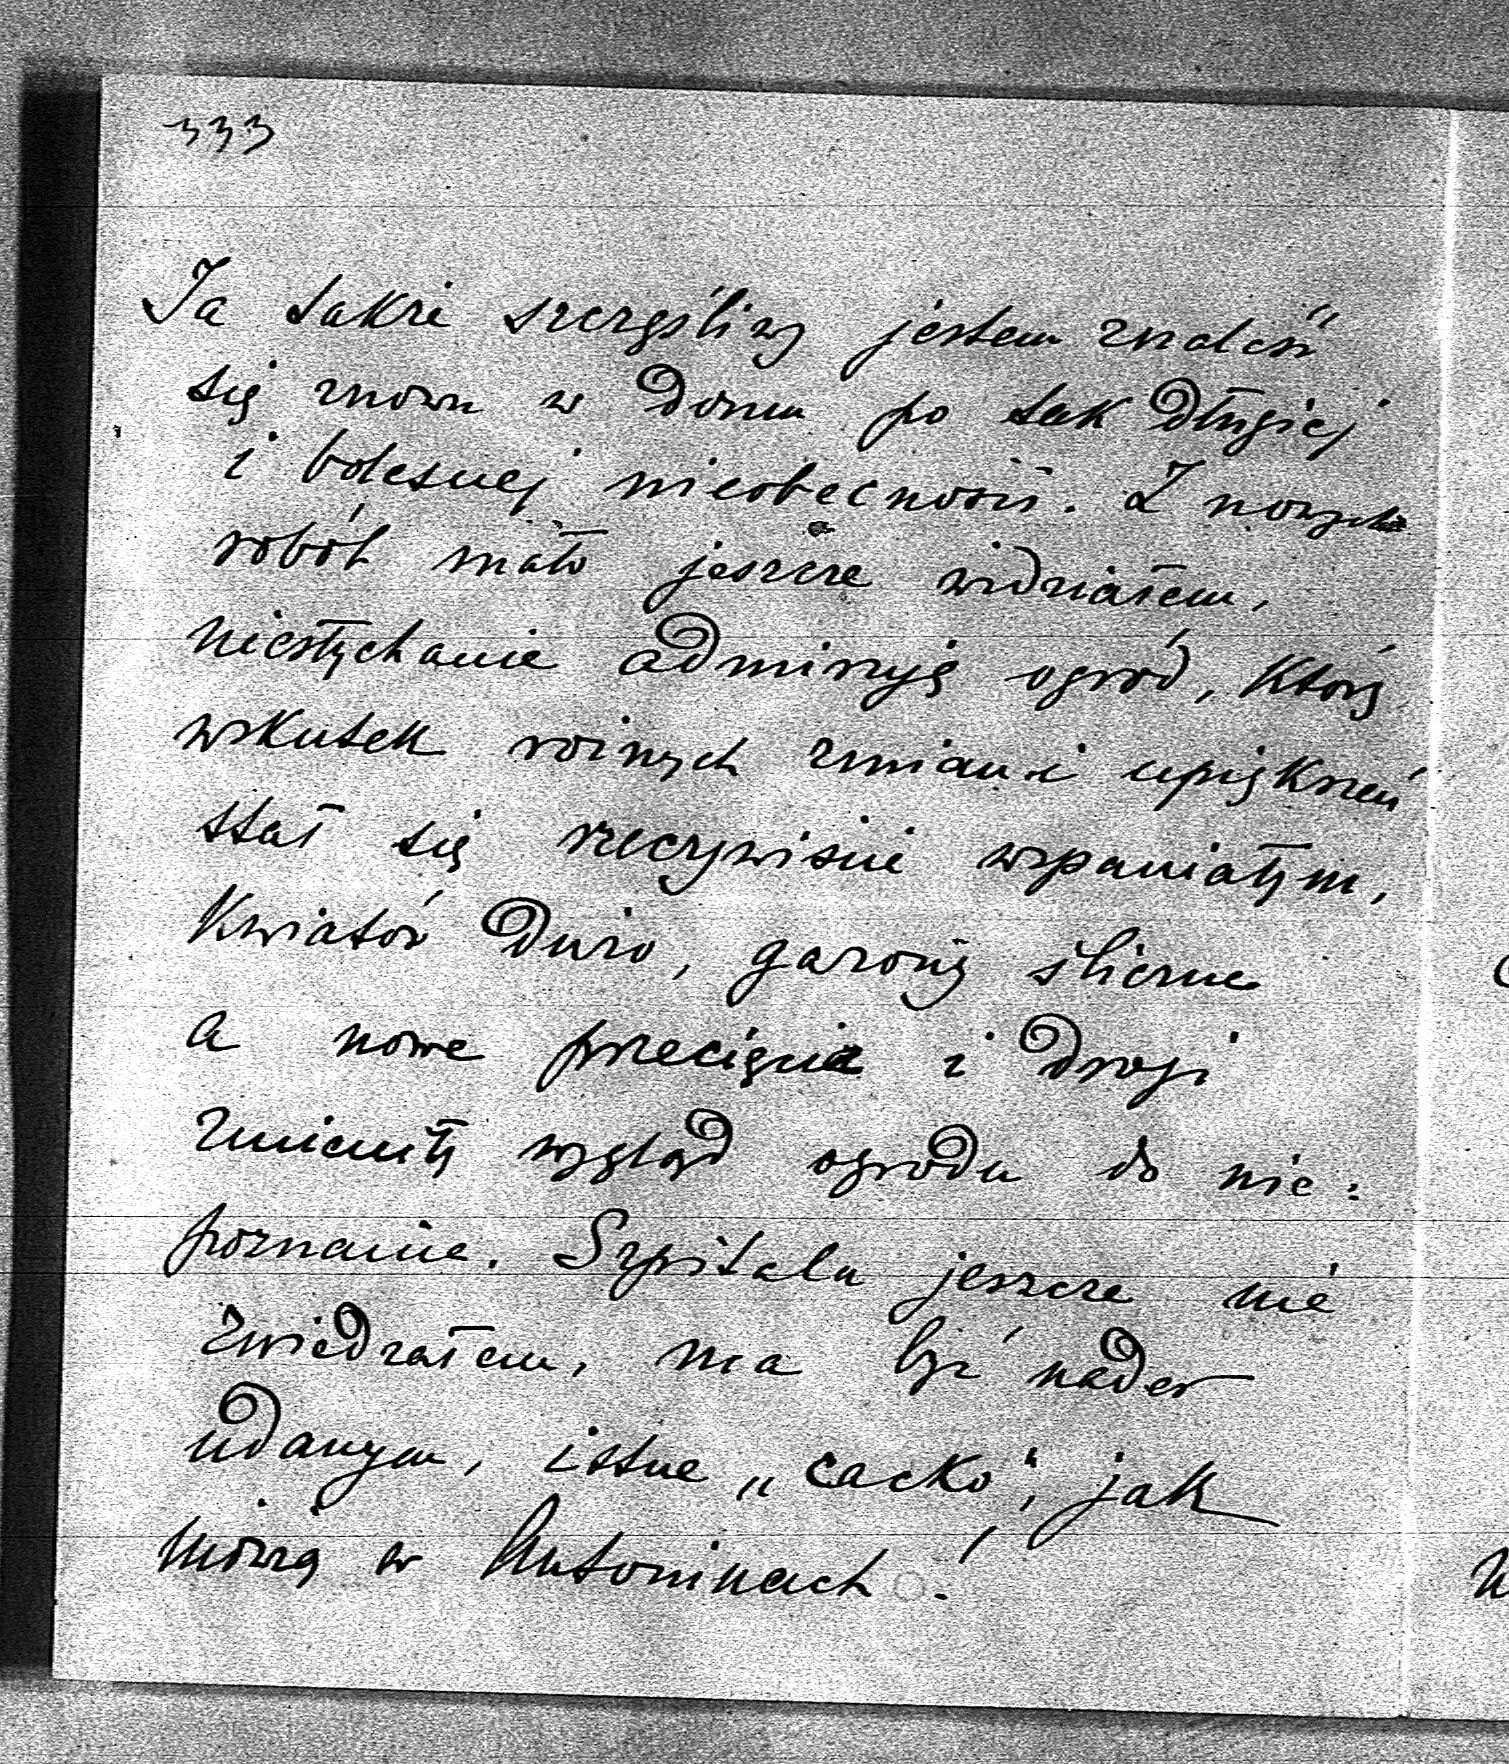 333
Ja także szczęśliwy jestem znaleść
się znowu w domu po tak długiej
i bolesnej nieobecności. Z nowych
robót mało jeszcze widziałem,
niesłychanie admiruję ogród, który
wskutek różnych zmian i upiększeń
stał się rzeczywiście wspaniałym,
kwiatów dużo, gazony śliczne
a nowe przecięcia i drogi
zmieniły wygląd ogrodu do nie:
poznania. Szpitala jeszcze nie
zwiedzałem, ma być nader
udanym, istne „cacko“, jak
mówią w Antoninach!